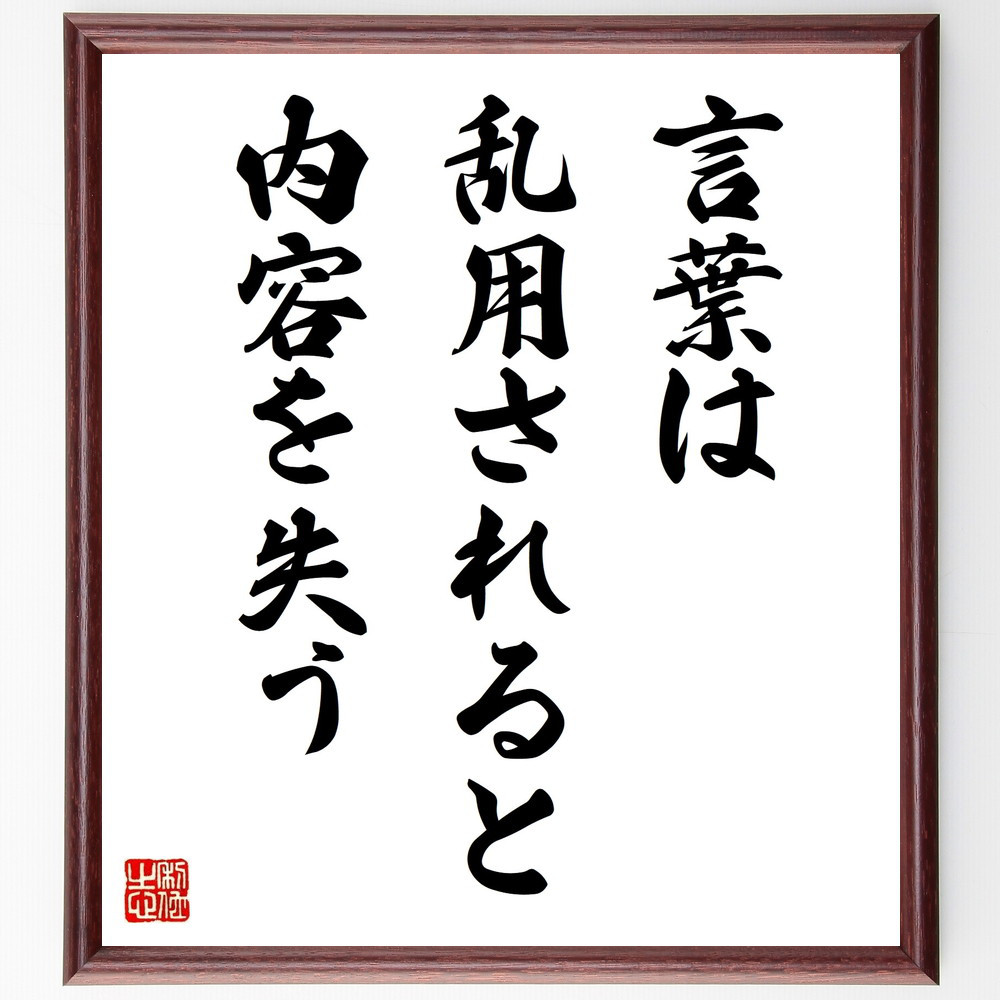 言葉は
乱用されると
内容を失う